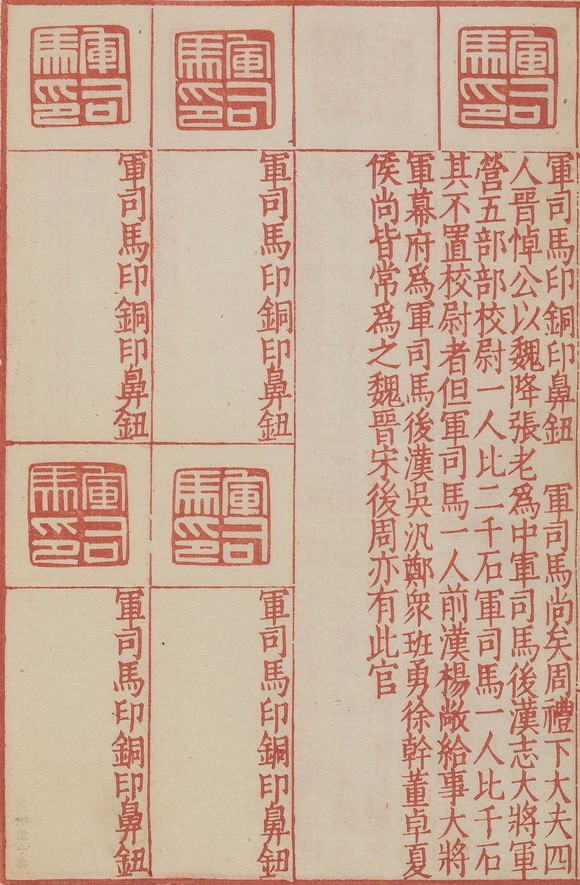 軍司
馬印
軍司馬印銅印鼻鈕　軍司馬尚矣周禮下大夫四
人晉悼公以魏降張老爲中軍司馬後漢志大將軍
營五部部校尉一人比二千石軍司馬一人比千石
其不置校尉者但軍司馬一人前漢楊敞給事大將
軍幕府爲軍司馬後漢吳汎鄭衆班勇徐幹董卓夏
侯尚皆常爲之魏晉宋後周亦有此官
軍司
馬印
軍司馬印銅印鼻鈕
軍司
馬印
軍司馬印銅印鼻鈕
軍司
馬印
軍司馬印銅印鼻鈕
軍司
馬印
軍司馬印銅印鼻鈕